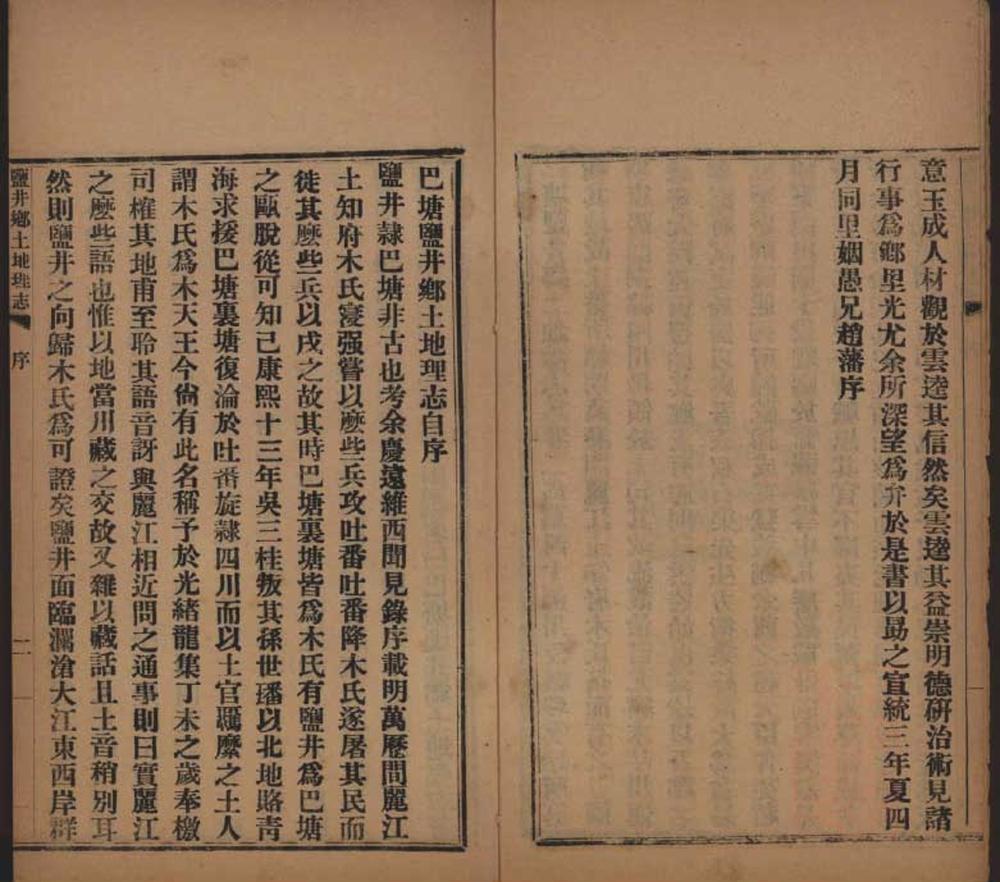 意玉成人材觀於雲逵其信然矣雲逵其益崇明德研治術見諸
行事爲鄉里光尤余所深望爲弁於是書以勗之宣統三年夏四
月同里姻愚兄趙藩序
巴塘鹽井鄉土地理志自序
鹽井隷巴塘非古也考余慶遠維西聞見錄序載明萬歷間麗江
土知府木氏寖强嘗以麽些兵攻吐番吐番降木氏遂屠其民而
徙其麽些兵以戍之故其時巴塘裏塘皆爲木氏有鹽井爲巴塘
之甌脫從可知已康熙十三年吳三桂叛其孫世璠以北地賂靑
海求援巴塘裏塘復淪於吐番旋隷四川而以土官羈縻之土人
謂木氏爲木天王今尙有此名稱予於光緒龍集丁未之歲奉檄
司榷其地甫至聆其語音訝與麗江相近問之通事則曰實麗江
之麽些語也惟以地當川藏之交故又雜以藏話且土音稍別耳
然則鹽井之向歸木氏爲可證矣鹽井面臨瀾滄大江東西岸群
鹽井鄉土地理志 序 二